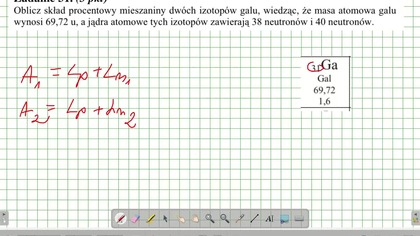 Oblicz skład procentowy mieszaniny dwóch izotopów galu, wiedząc, że masa atomowa galu
wynosi 69,72 u, a jądra atomowe tych izotopów zawierają 38 neutronów i 40 neutronów.
A₁ = Lp + Ln₁
A₂ = Lp + Ln₂
31Ga
Gal
69,72
1,6